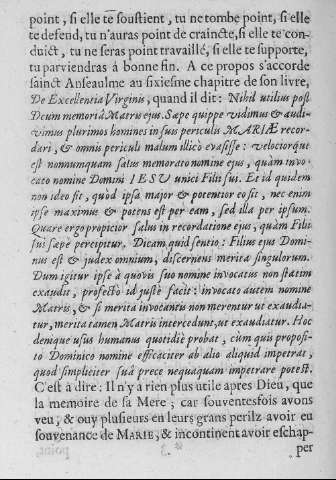 point, si elle te soustient, tu ne tombe point, si elle
te defend, tu n'auras point de craincte, si elle te con-
duict, tu ne seras point travaillé, si elle te supporte,
tu parviendras à bonne fin. A ce propos s'accorde
sainct Anseaulme au sixiesme chapitre de son livre,
De Excellentia Virginis, quand il dit: Nihil utilius post
Deum memoriâ Matris ejus. Sæpe quippe vidimus & audi-
vimus plurimos homines in suis periculis MARIÆ recor-
dari, & omnis periculi malum illico evasisse: velociorque
est nonnumquam salus memorato nomine ejus, quàm invo-
cato nomine Domini IESU unici Filii sui. Et id quidem
non ideo fit, quòd ipsa major & potentior eo sit, nec enim
ipse maximus & potens est per eam, sed illa per ipsum.
Quare ergo propicior salus in recordatione ejus, quàm Filii
sui sæpe percipitur. Dicam quid sentio: Filius ejus Domi-
nus est & judex omnium, discernens merita singulorum.
Dum igitur ipse à quovis suo nomine invocatus non statim
exaudit, profectò id justè facit: invocato autem nomine
Matris, & si merita invocantis non merentur ut exaudia-
tur, merita tamen Matris intercedunt, ut exaudiatur. Hoc
denique usus humanus quotidiè probat, cum quis proposi-
to Dominico nomine efficaciter ab alio aliquid impetrat,
quod simpliciter suâ prece nequaquam impetrare potest.
C'est à dire: Il n'y a rien plus utile apres Dieu, que
la memoire de sa Mere; car souventesfois avons
veu, & ouy plusieurs en leurs grans perilz avoir eu
souvenance de MARIE, & incontinent avoir eschap-
per